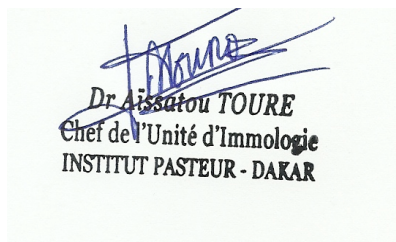 Toure
Dr Aïssatou TOURE
Chef de l'Unité d'Immologie
INSTITUT PASTEUR - DAKAR